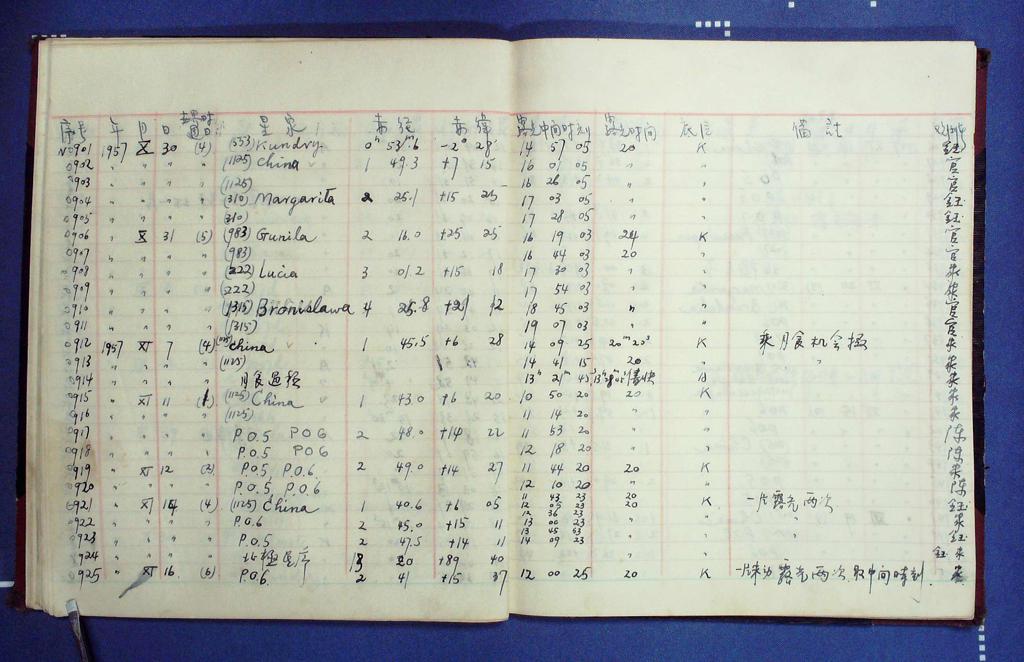 序号 年 月 日 星象 赤经 赤纬 露光中间时刻 露光时间 底片 备註
No901 1957 X 30 (4) (553) Kundry 0h 53m.6 -2° 28' 14 57 05 20 K 钰
0902 " " " " (1125) China 1 49.3 +7 15 16 01 05 " " 官
0903 " " " " (1125) 16 26 05 " " 官
0904 " " " " (310) Margarita 2 25.1 +15 25 17 03 05 " " 钰
0905 " " " " (310) 17 28 05 " " 钰
0906 " X 31 (5) (983) Gunila 2 16.0 +25 25 16 19 03 24 K 官
0907 " " " " (983) 16 44 03 20 " 官
0908 " " " " (222) Lucia 3 01.2 +15 18 17 30 03 " "
0909 " " " " (222) 17 54 03 " "
0910 " " " " (1315) Bronislawa 4 25.8 +21 12 18 45 03 " " 官
0911 " " " " (1315) 19 07 03 " " 官
0912 1957 XI 7 (4) (1125) China 1 45.5 +6 28 14 09 25 20m 20s K 乘月食机会摄
0913 " " " " (1125) 14 41 15 20 " "
0914 " " " " 月食过程 13h 21m 45s
0915 " XI 11 (1) (1125) China 1 43.0 +6 20 10 50 20 20 K
0916 " " " " (1125) 11 14 20 " "
0917 " " " " P.O.5 P O 6 2 48.0 +14 22 11 53 20 " " 陈
0918 " " " " P.O.5 P O 6 12 18 20 " " 陈
0919 " XI 12 (2) P.O.5, P.O.6 2 49.0 +14 27 11 44 20 20 K
0920 " " " " P.O.5, P.O.6 12 10 20 " " 陈
0921 " XI 14 (4) (1125) China 1 40.6 +6 05 11 43 23 20 K 一片露光两次 钰
12 07 23 20
0922 " " " " P.O.6 2 45.0 +15 11 12 36 23 " " "
13 00 23
0923 " " " " P.O.5 2 47.5 +14 11 13 45 53 " " " 钰
14 09 23
0924 " " " " 北极星序 13 20 +89 40 " " 钰
0925 " XI 16 (6) P O 6 2 41 +15 37 12 00 25 20 K 露光两次 取中间时刻